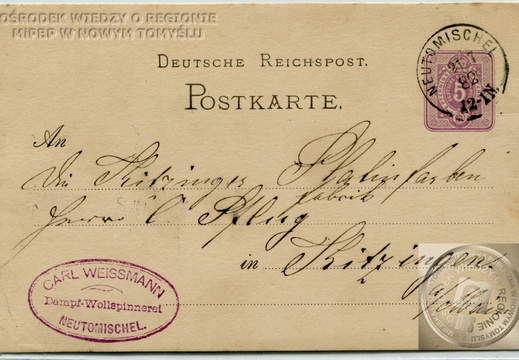 OŚRODEK WIEDZY O REGIONIE
MIPBP W NOWYM TOMYŚLU
DEUTSCHE REICHSPOST.
POSTKARTE.
NEUTOMISCHEL
21 7
82
12-1N.
5
An
die Kitzinger Platinfarben
fabrik
Herrn C Pflug
in Kitzingen
CARL WEISSMANN
Dampf-Wollspinnerei
NEUTOMISCHEL.
REGIONIE